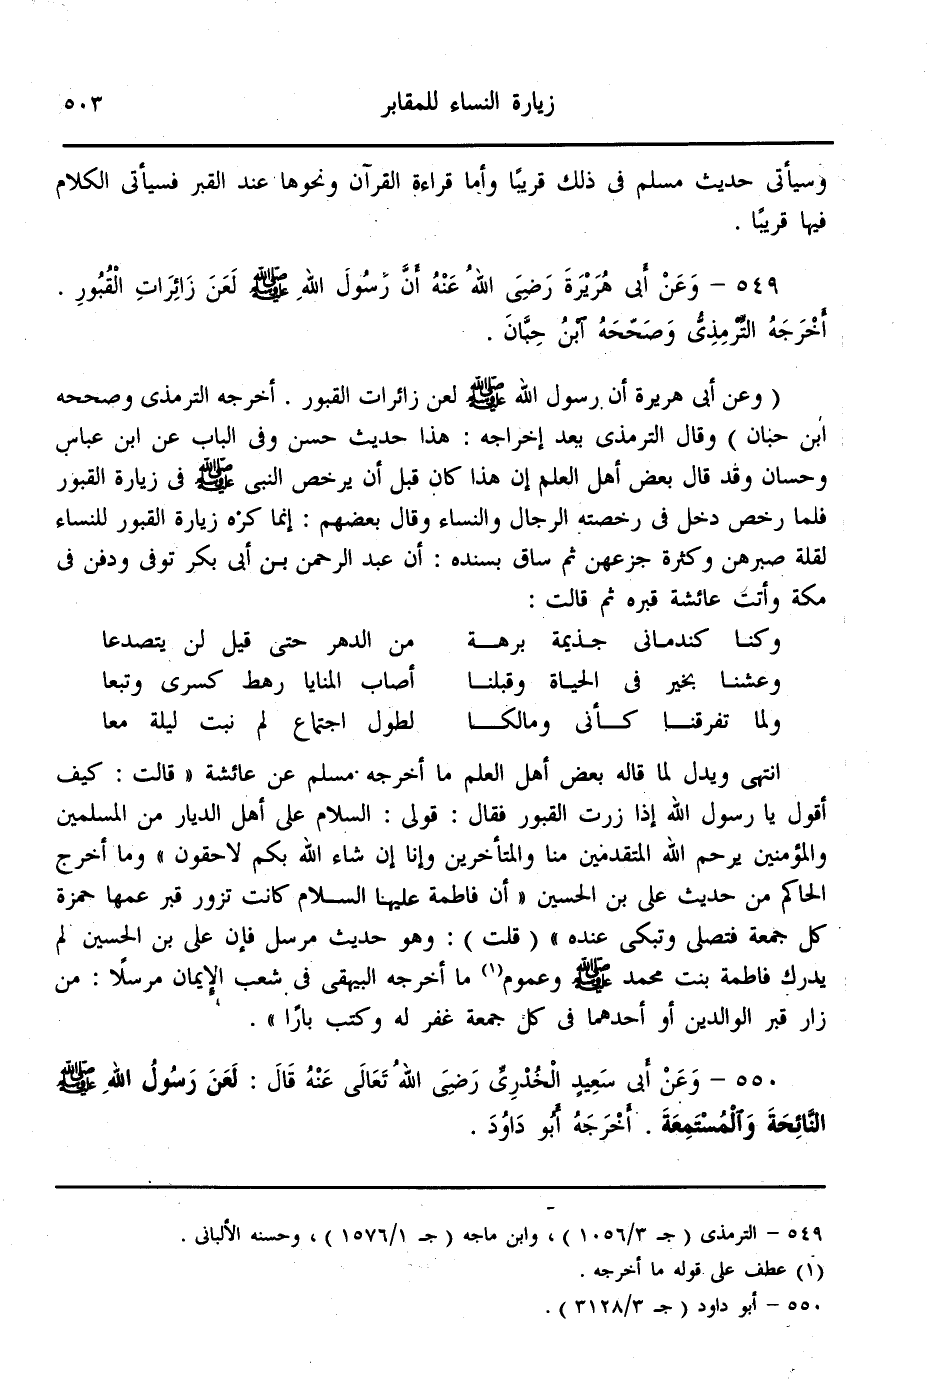 زيارة النساء للمقابر ٥٠٣
وسيأتى حديث مسلم فى ذلك قريبًا وأما قراءة القرآن ونحوها عند القبر فسيأتى الكلام
فيها قريبًا .
٥٤٩ – وَعَنْ أَبى هُرَيْرَةَ رَضِىَ اللهُ عَنْهُ أَنَّ رَسُولَ اللهِ ﷺ لَعَنَ زَائِرَاتِ الْقُبُورِ .
أَخْرَجَهُ التِّرْمِذِىُّ وَصَحَّحَهُ ٱبْنُ حِبَّانَ .
( وعن أبى هريرة أن رسول الله ﷺ لعن زائرات القبور . أخرجه الترمذى وصححه
ابن حبان ) وقال الترمذى بعد إخراجه : هذا حديث حسن وفى الباب عن ابن عباس
وحسان وقد قال بعض أهل العلم إن هذا كان قبل أن يرخص النبى ﷺ فى زيارة القبور
فلما رخص دخل فى رخصته الرجال والنساء وقال بعضهم : إنما كره زيارة القبور للنساء
لقلة صبرهن وكثرة جزعهن ثم ساق بسنده : أن عبد الرحمن بن أبى بكر توفى ودفن فى
مكة وأتت عائشة قبره ثم قالت :
وكنا كندمانى جذيمة برهة من الدهر حتى قيل لن يتصدعا
وعشنا بخير فى الحياة وقبلنا أصاب المنايا رهط كسرى وتبعا
ولما تفرقنا كأنى ومالكا لطول اجتماع لم نبت ليلة معا
انتهى ويدل لما قاله بعض أهل العلم ما أخرجه مسلم عن عائشة « قالت : كيف
أقول يا رسول الله إذا زرت القبور فقال : قولى : السلام على أهل الديار من المسلمين
والمؤمنين يرحم الله المتقدمين منا والمتأخرين وإنا إن شاء الله بكم لاحقون » وما أخرج
الحاكم من حديث على بن الحسين « أن فاطمة عليها السلام كانت تزور قبر عمها حمزة
كل جمعة فتصلى وتبكى عنده » ( قلت ) : وهو حديث مرسل فإن على بن الحسين لم
يدرك فاطمة بنت محمد ﷺ وعموم(١) ما أخرجه البيهقى فى شعب الإيمان مرسلًا : من
زار قبر الوالدين أو أحدهما فى كل جمعة غفر له وكتب بارًا » .
٥٥٠ – وَعَنْ أَبى سَعِيدٍ الْخُدْرِىِّ رَضِىَ اللهُ تَعَالَى عَنْهُ قَالَ : لَعَنَ رَسُولُ اللهِ ﷺ
النَّائِحَةَ وَٱلْمُسْتَمِعَةَ . أَخْرَجَهُ أَبُو دَاوُدَ .
٥٤٩ – الترمذى ( جـ ١٠٥٦/٣ ) ، وابن ماجه ( جـ ١٥٧٦/١ ) ، وحسنه الألبانى .
(١) عطف على قوله ما أخرجه .
٥٥٠ – أبو داود ( جـ ٣١٢٨/٣ ) .